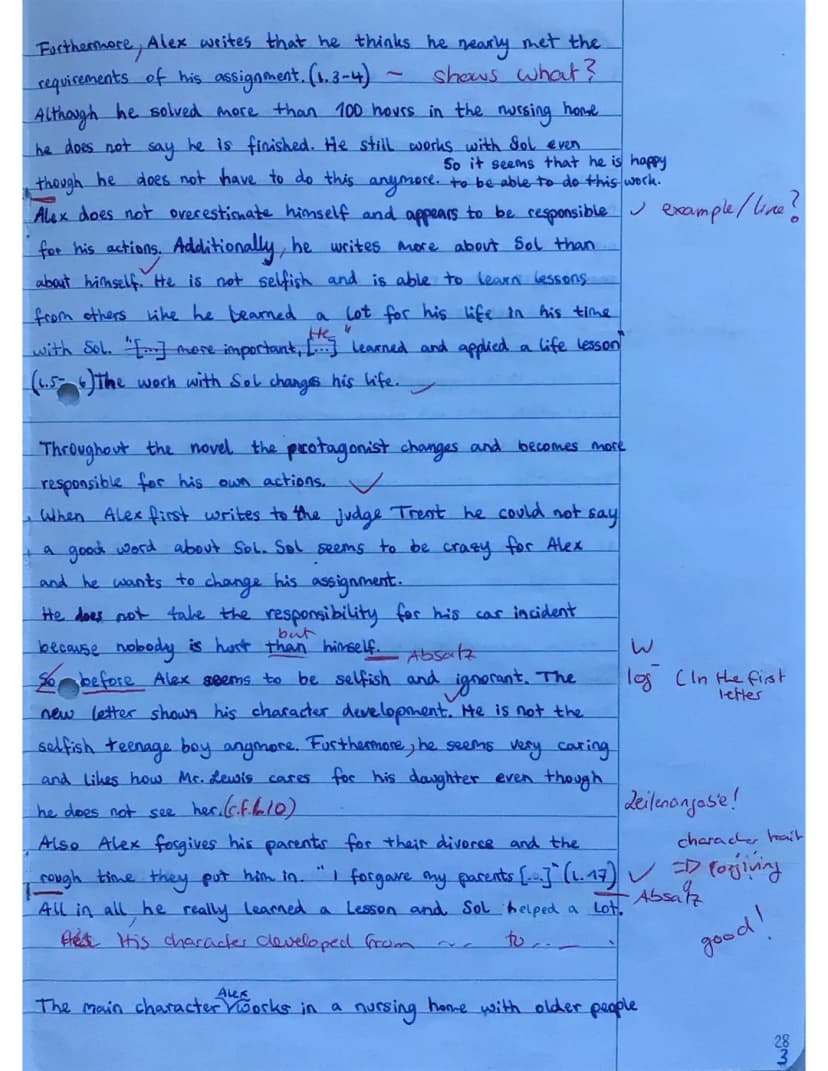 Furthermore, Alex writes that he thinks he nearly met the
requirements of his assignment. (l. 3-4) ~ shows what?
Although he solved more than 100 hours in the nursing home
he does not say he is finished. He still works with Sol even
So it seems that he is happy
though he does not have to do this anymore. to be able to do this work.
Alex does not overestimate himself and appears to be responsible ✓ example/line?
for his actions. Additionally, he writes more about Sol than
about himself. He is not selfish and is able to learn lessons
from others like he learned a lot for his life in his time
He "
with Sol. "[...] more important, [...] learned and applied a life lesson"
(l.5-6) The work with Sol changes his life.
Throughout the novel the protagonist changes and becomes more
responsible for his own actions. ✓
When Alex first writes to the judge Trent he could not say
a good word about Sol. Sol seems to be crazy for Alex
and he wants to change his assignment.
He does not take the responsibility for his car incident
but
because nobody is hurt than himself. Absatz W
So before Alex seems to be selfish and ignorant. The log (In the first
letter
new letter shows his character development. He is not the
selfish teenage boy anymore. Furthermore, he seems very caring
and likes how Mr. Lewis cares for his daughter even though
he does not see her. (c.f. l. 10) Zeilenangabe!
Also Alex forgives his parents for their divorce and the character trait
rough time they put him in. "I forgave my parents [...]" (l. 17) ✓ => forgiving
All in all, he really learned a lesson and Sol helped a lot. Absatz
His character developed from ~~ to ... . good!
Alex
The main character works in a nursing home with older people
28
3